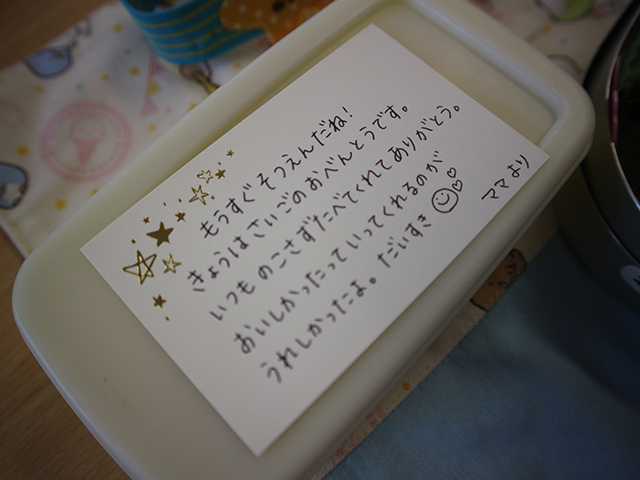 もうすぐ そつえんだね!
きょうは さいごの おべんとうです。
いつも のこさず たべてくれて ありがとう。
おいしかったって いってくれるのが
うれしかったよ。 だいすき
ママより